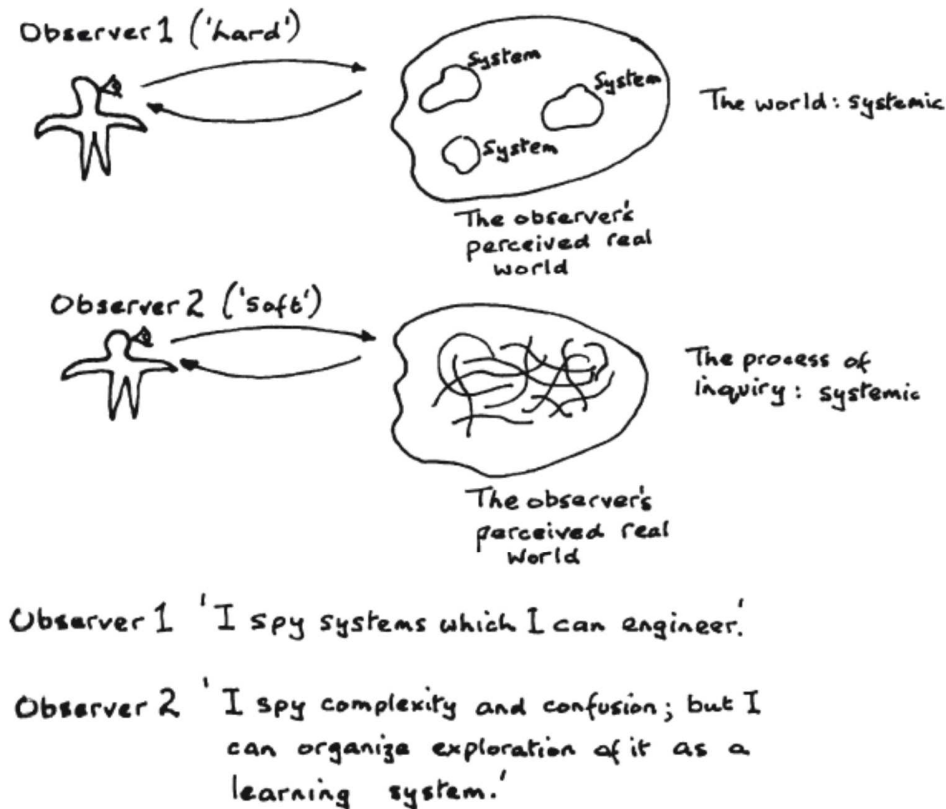 Observer 1 ('hard')
System
System
System
The world: systemic
The observer's
perceived real
world
Observer 2 ('soft')
The process of
inquiry: systemic
The observer's
perceived real
world
Observer 1 'I spy systems which I can engineer.'
Observer 2 'I spy complexity and confusion; but I
can organize exploration of it as a
learning system.'